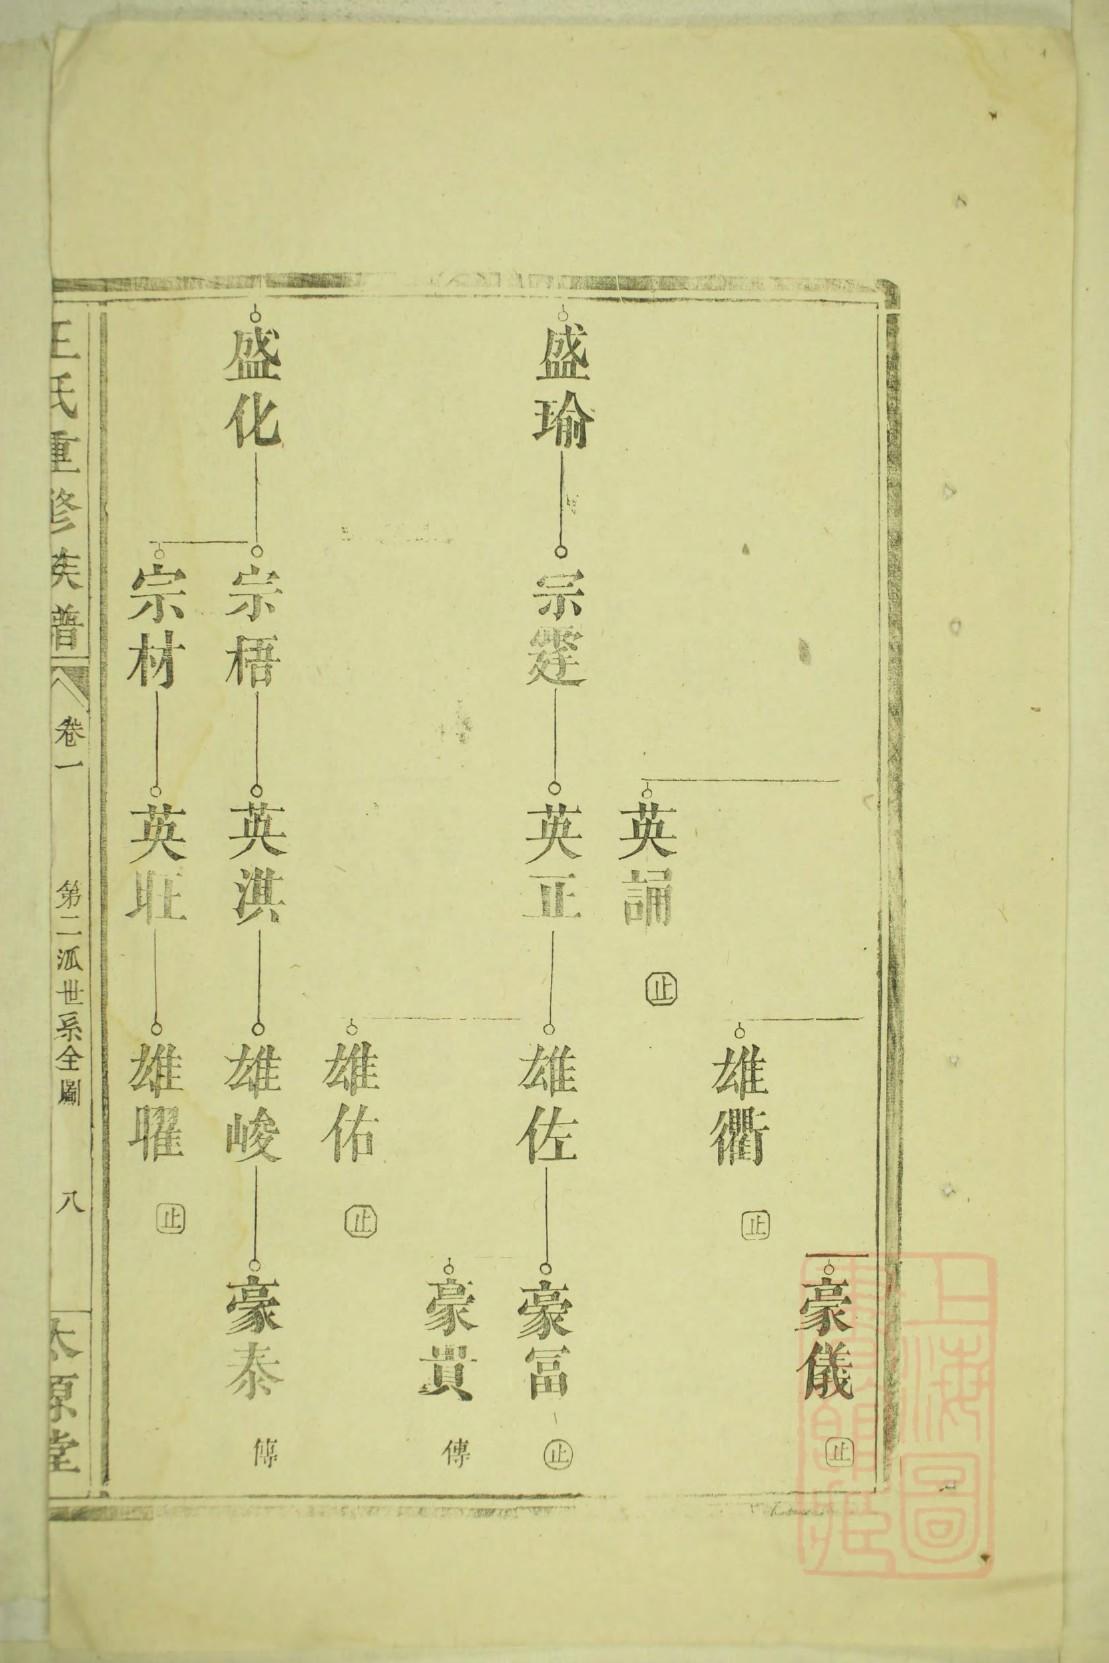 豪儀
止
雄衢
止
英誦
止
盛瑜
宗霆
英正
雄佐
豪富
止
豪貴
傳
雄佑
止
盛化
宗梧
英淇
雄峻
豪泰
傳
宗材
英旺
雄曜
止
王氏重修族譜
卷一
第二派世系全圖
八
太原堂
上海圖
書館藏